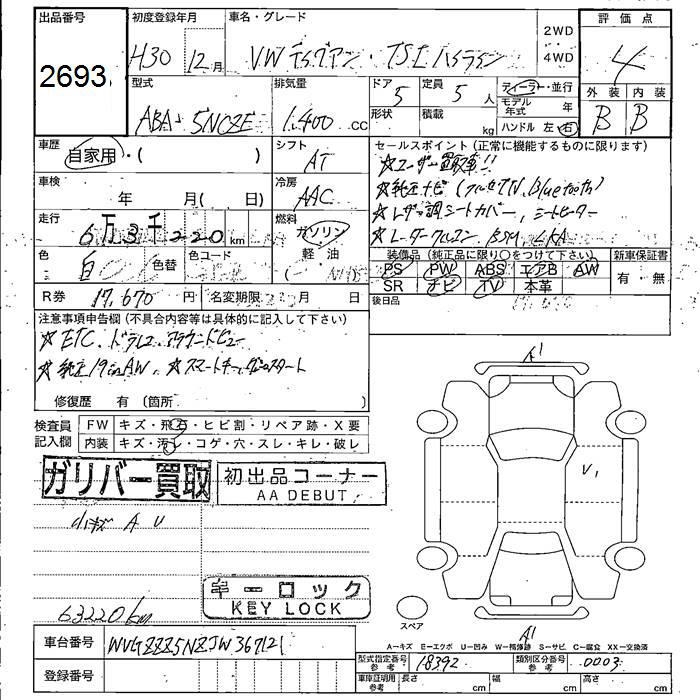 出品番号 初度登録年月 車名・グレード 2WD 4WD 評価点
2693 H30 12月 VW ティグアン・TSI ハイライン 4
型式 排気量 ドア 5 定員 5人 ディーラー・並行 外装 内装
ABA-5NCZE 1.400 CC 形状 積載 kg モデル年式 年 B B
ハンドル 左・右
車歴 自家用・( ) シフト AT セールスポイント(正常に機能するものに限ります)
★ユーザー買取車!!
車検 年 月( 日) 冷房 AAC ★純正ナビ(フルセグTV、Bluetooth)
★レザー調シートカバー、シートヒーター
走行 6万3千220km 燃料 ガソリン ★レーダークルコン BSM LKA
色 白 色替 色コード 軽・油 装備品(純正品に限り○をつけて下さい) 新車保証書
( ) PS PW ABS エアB AW 有・無
SR ナビ TV 本革
R券 17,670円 名変期限 月 日 後日品
注意事項申告欄(不具合内容等は具体的に記入して下さい)
★ETC、ドラレコ アラウンドビュー
★純正19inAW、★スマートキー
修復歴 有(箇所 )
A1
検査員記入欄 FW キズ・飛石・ヒビ割・リペア跡・X要
内装 キズ・汚レ・コゲ・穴・スレ・キレ・破レ
ガリバー買取 初出品コーナー
AA DEBUT
U1
小キズ A U
キーロック
KEY LOCK
63220km
スペア
A1
A-キズ E-エクボ U-凹み W-補修跡 S-サビ C-腐食 XX-交換済
車台番号 WVGZZZ5NZJW367121
型式指定番号参考 18392 類別区分番号参考 0003
登録番号 車庫証明用参考 長さ cm 幅 cm 高さ cm